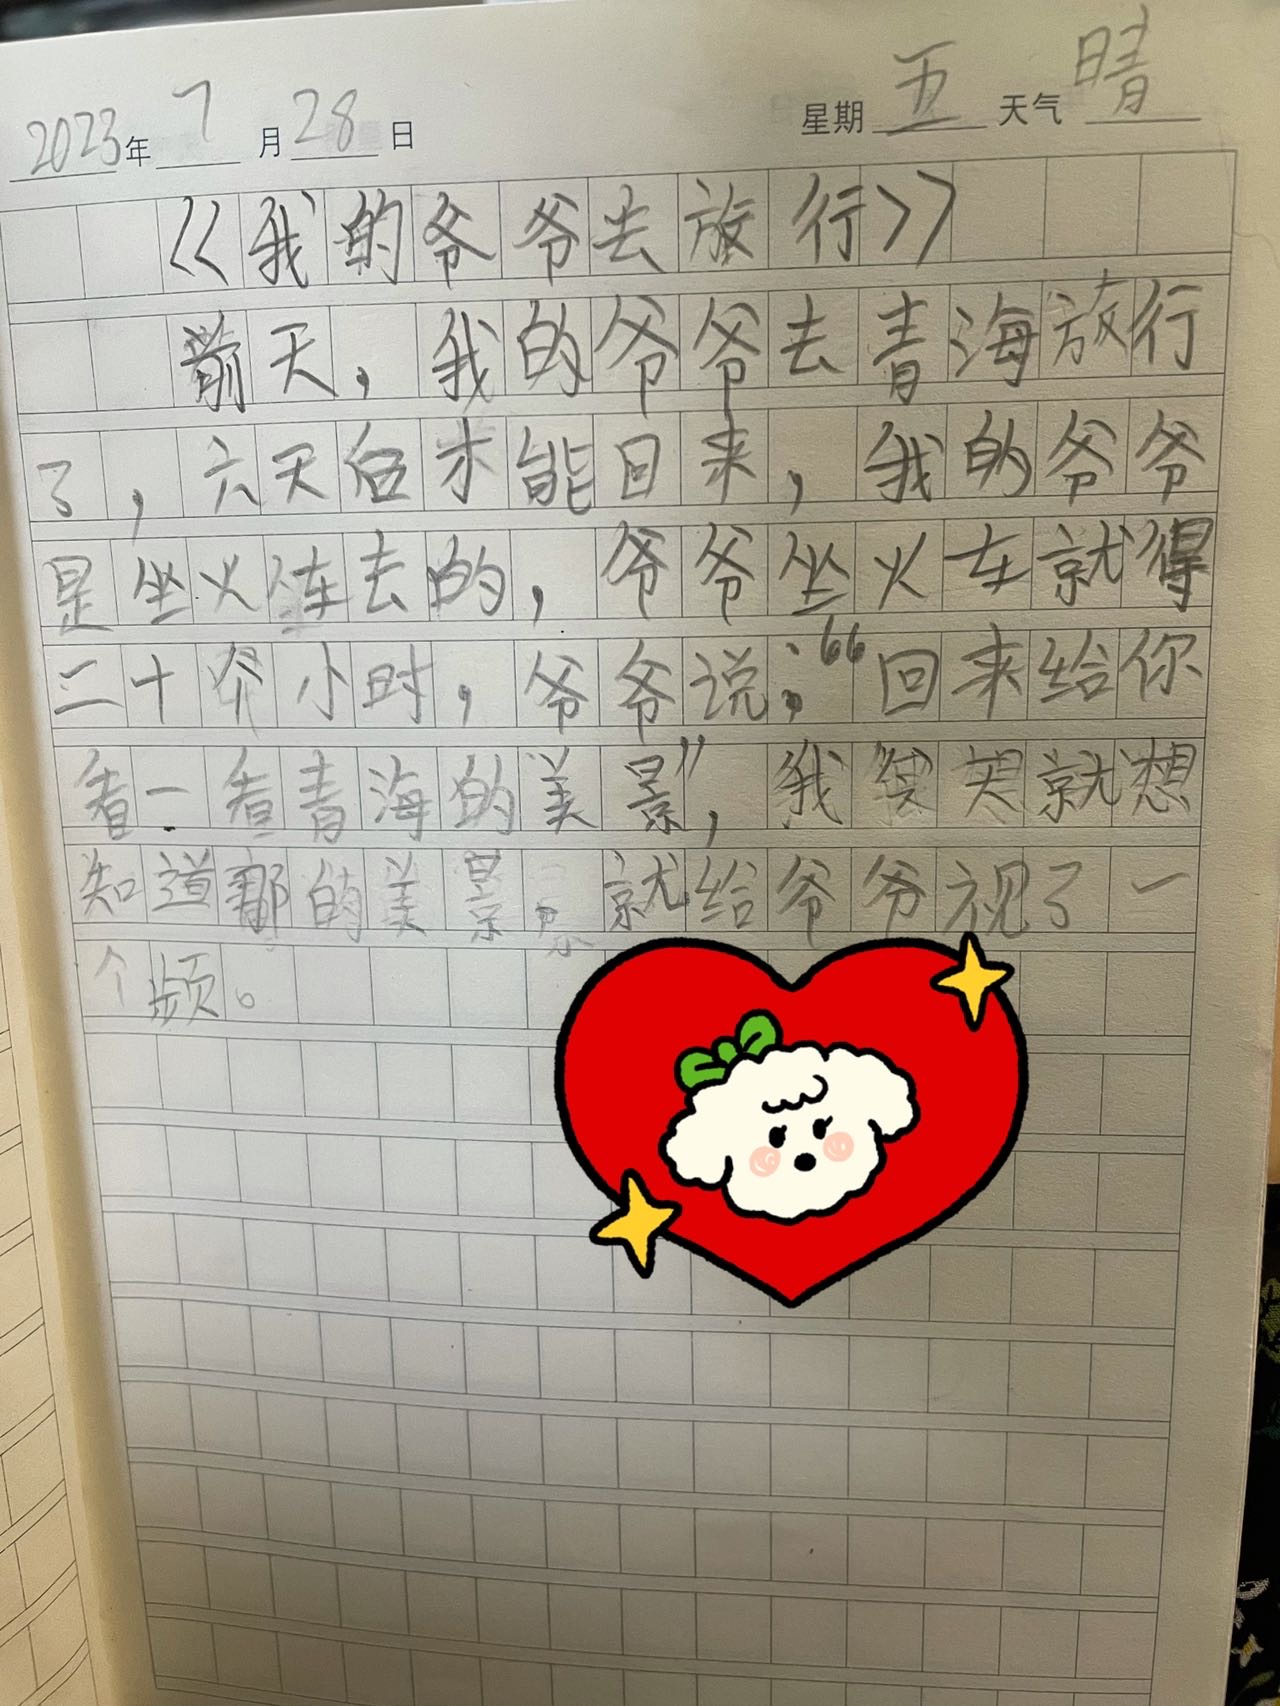 2023年 7 月 28 日 星期 五 天气 晴
《我的爷爷去旅行》
前天，我的爷爷去青海旅行
了，六天后才能回来，我的爷爷
是坐火车去的，爷爷坐火车就得
二十个小时，爷爷说：“回来给你
看一看青海的美景”，我突就想
知道那的美景 就给爷爷视了一
个频。